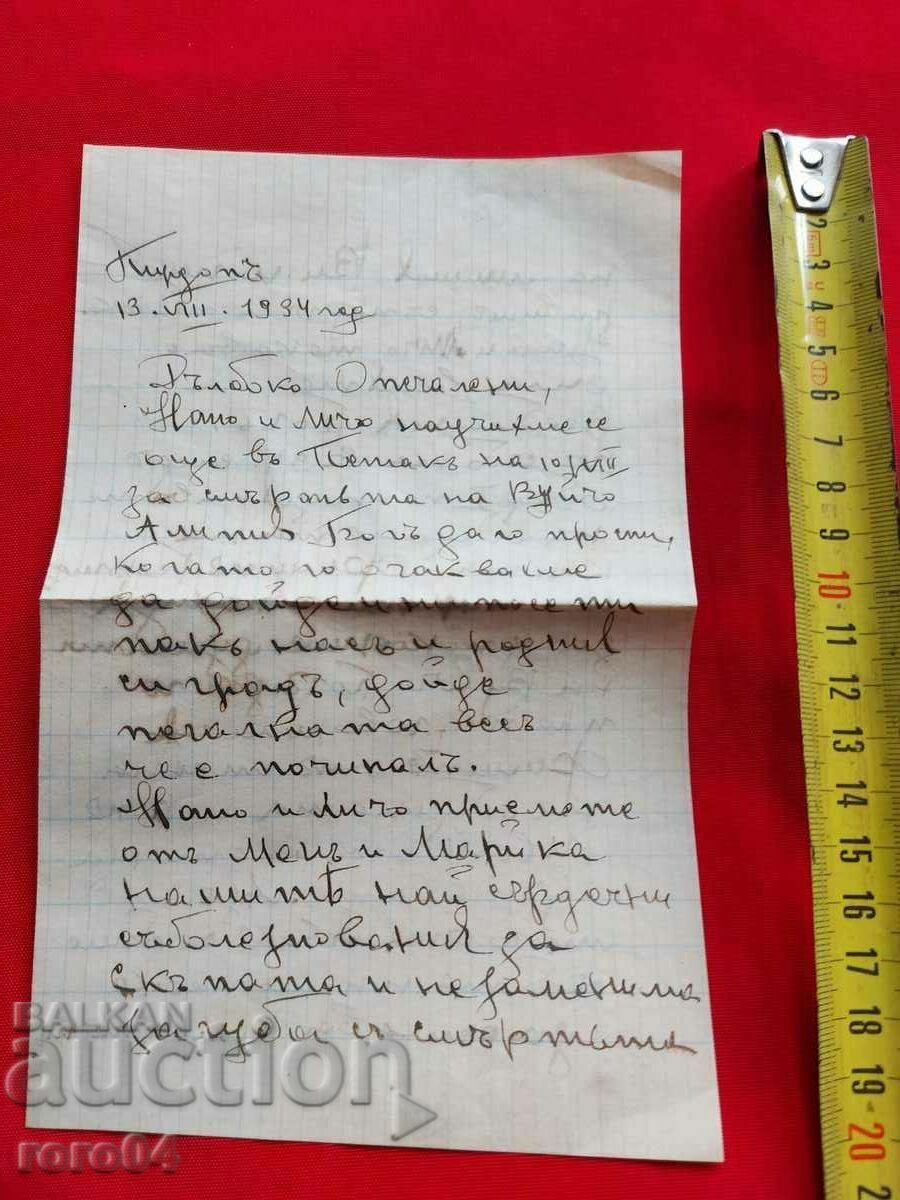 Пирдопъ
13.VIII.1934 год
Дълбоко Опечалени,
Напо и Личо научихме се
още въ Петакъ на 10/VIII
за смъртьта на Вуйчо
Алипия Богъ да го прости,
Когато го очаквахме
да дойде и ни посети
пакъ насъ и родния
си градъ, дойде
печалната весъ
че е починалъ.
Напо и Личо приемете
отъ Менъ и Марийка
нашитѣ най сърдечни
съболезнования за
скъпата и незаменима
загуба съ смъртьта
BALKAN
auction
roro04
2 3 4 5 6 7 8 9 10 11 12 13 14 15 16 17 18 19 20 2